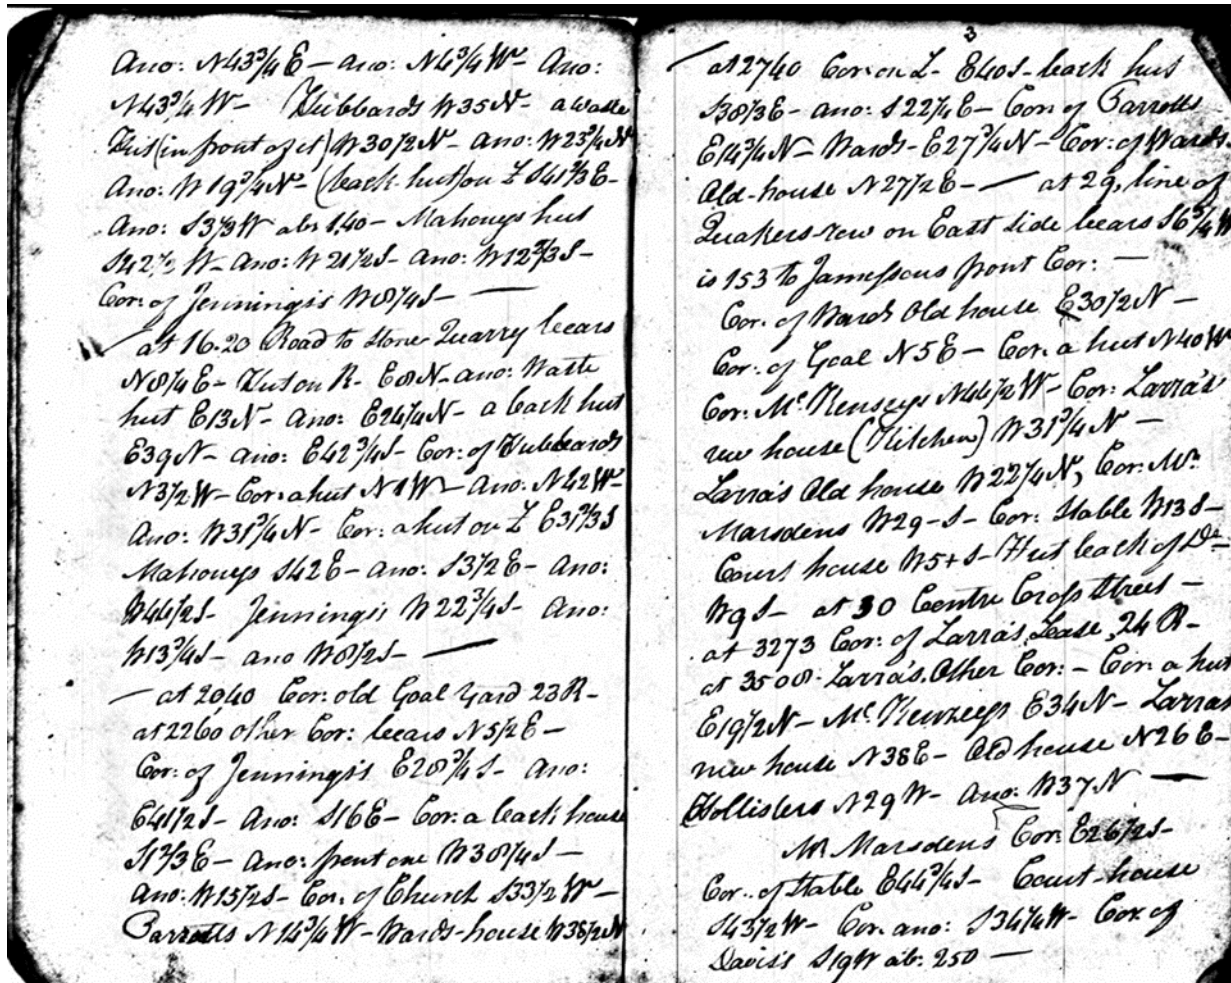 Ano: N43¾E – ano: N4¾W – Ano:
N43¾W – Hibbards W35N – a waste
Hut (in front of it) W30½N – ano: W23¾N
Ano: W19¾N – (back hut) on L S41⅔E –
Ano: S3⅓W abt 1.40 – Mahoneys hut
S42½W – Ano: W21½S – ano: W12⅔S –
Cor: of Jennings's W8¼S –
at 16.20 Road to Stone Quarry bears
N8¼E – Hut on R – E8N – ano: Waste
hut E13N – Ano: E24¼N – a back hut
E39N – ano: E42¾S – Cor: of Hubbards
N3½W – Cor: a hut N1W – Ano: N42W –
Ano: W31¾N – Cor: a hut on L E31⅔S
Mahoneys S42E – ano: S3½E – Ano:
W44½S – Jennings's W22¾S – Ano:
W13¾S – ano W8½S –
– at 2040 Cor: old Goal Yard 23R –
at 2260 other Cor: bears N5½E –
Cor: of Jennings's E28¾S – Ano:
E41½S – Ano: S16E – Cor: a back house
S1⅔E – Ano: front one W38¼S –
Ano: W15½S – Cor: of Church S33½W –
Parrotts N14¾W – Wards-house W38½N
3
at 2740 Cor: on L – E40S – back hut
S38⅓E – ano: S22¼E – Cor: of Parrotts
E14¾N – Wards – E27¾N – Cor: of Wards
Old-house N27½E – at 29, line of
Quakers row on East side bears S6¾W
is 153 to Jamessons front Cor: –
Cor: of Wards Old house E30½N –
Cor: of Goal N5E – Cor: a hut N40W
Cor: Mc. Kenzeys N44½W – Cor: Larra's
new house (Kitchen) W31¾N –
Larra's Old house W22¼N, Cor: Mr.
Marsdens W29-S – Cor: Stable W13S –
Court house W5+S – Hut back of Do
W9S – at 30 Centre Cross Street –
at 3273 Cor: of Larra's Lease, 24 R –
at 3508: Larra's Other Cor: – Cor: a hut
E19½N – Mc. Kenzeys E34N – Larras
new house N38E – Old house N26E –
Hollisters N29W – Ano: W37N –
Mr Marsdens Cor: E26½S –
Cor: of Stable E44¾S – Court-house
S43½W – Cor: ano: S34¼W – Cor: of
Davis's S19W ab: 250 –